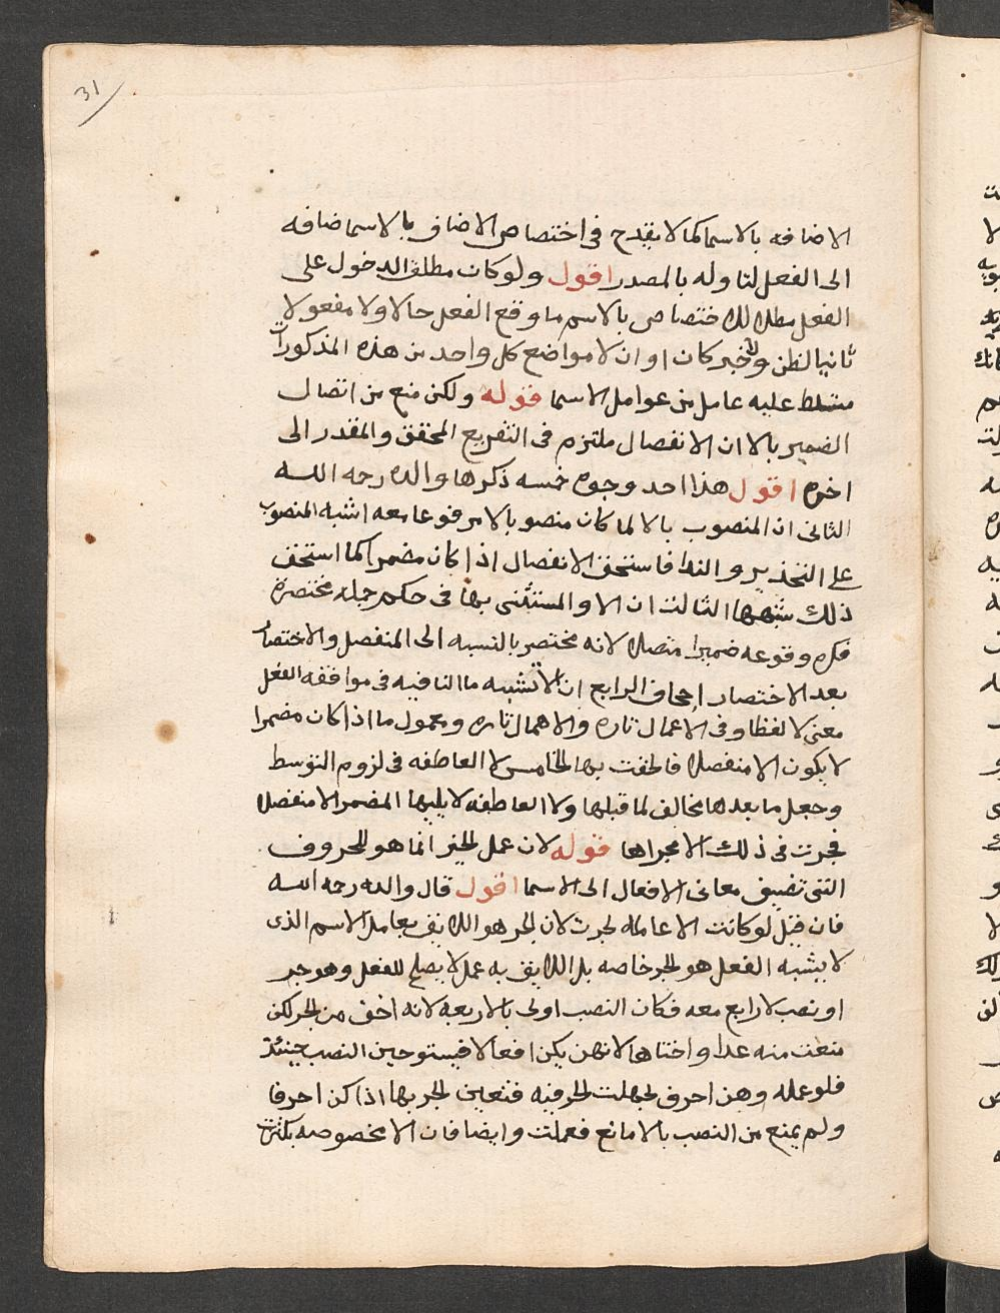 31
الاضافه بالاسما كما لا يقدح فى اختصاص الاضاف بالاسما ضافه
الى الفعل لتاوله بالمصدر اقول ولو كان مطلق الدخول على
الفعل مبطلا للاختصاص بالاسم ما وقع الفعل حالا ولا مفعولا
ثانيا لظن ولا خبر كان او ان لا مواضع كل واحد من هذه المذكورات
متسلط عليه عامل من عوامل الاسما قوله ولكن منع من اتصال
الضمير بالا ان الانفصال ملتزم فى التفريع المحقق والمقدر الى
اخره اقول هذا احد وجوه خمسه ذكرها والده رحه الله
الثانى ان المنصوب بالا لما كان منصوبا لا مرفوعا معه اشبه المنصوب
على التحذير والندا فاستحق الانفصال اذا كان مضمرا كما استحق
ذلك شبهها الثالث ان الا والمستثنى بها فى حكم جمله مختصرة
فكره وقوعه ضميرا متصلا لانه مختصر بالنسبه الى المنفصل والاختصار
بعد الاختصار اجحاف الرابع ان الا تشبه ما النافيه فى موافقه الفعل
معنى لا لفظا وفى الاعمال تاره والاهمال تاره ومعمول ما اذا كان مضمرا
لا يكون الا منفصلا فالحقت بها الخامس لا العاطفه فى لزوم التوسط
وجعل ما بعدها مخالف لما قبلها ولا العاطفه لا يليها المضمر الا منفصلا
فجرت فى ذلك الا مجراها قوله لان عمل الجر انما هو للحروف
التى تضيف معانى الافعال الى الاسما اقول قال والده رحه الله
فان قيل لو كانت الا عامله لجرت لان الجر هو اللايق بعامل الاسم الذى
لا يشبه الفعل هو الجر خاصه بل اللايق به عمل لا يصلح للفعل وهو جر
او نصب لا رابع معه فكان النصب اولى بالا ربعه لانه اخف من الجر لكن
منعت منه عدا واختاها لانهن يكن افعالا فيستوجبن النصب حينئذ
فلو عمله وهن احرف لجهلت الحرفيه فتعين الجر بها اذا كن احرفا
ولم يمنع من النصب بالا مانع فعملت وايضا فان الا مخصوصه بكثرة